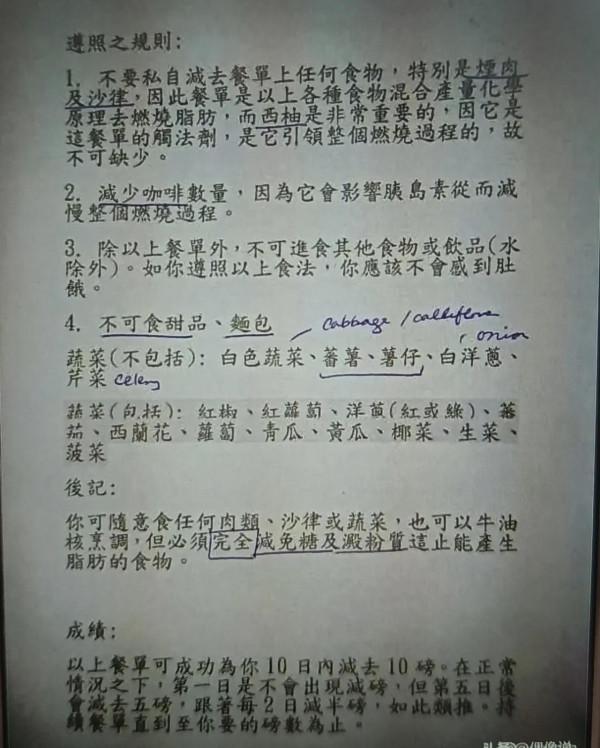 遵照之規則:
1. 不要私自減去餐單上任何食物，特別是煙肉
及沙律，因此餐單是以上各種食物混合產量化學
原理去燃燒脂肪，而西柚是非常重要的，因它是
這餐單的觸法劑，是它引領整個燃燒過程的，故
不可缺少。
2. 減少咖啡數量，因為它會影響胰島素從而減
慢整個燃燒過程。
3. 除以上餐單外，不可進食其他食物或飲品(水
除外)。如你遵照以上食法，你應該不會感到肚
餓。
4. 不可食甜品、麵包
cabbage / calliflore
, onion
蔬菜(不包括): 白色蔬菜、蕃薯、薯仔、白洋蔥、
芹菜 celery
蔬菜(包括): 紅椒、紅蘿蔔、洋蔥(紅或綠)、蕃
茄、西蘭花、蘿蔔、青瓜、黃瓜、椰菜、生菜、
菠菜
後記:
你可隨意食任何肉類、沙律或蔬菜，也可以牛油
核烹調，但必須完全減免糖及澱粉質這止能產生
脂肪的食物。
成績:
以上餐單可成功為你10日內減去10磅。在正常
情況之下，第一日是不會出現減磅，但第五日後
會減去五磅，跟著每2日減半磅，如此類推。持
續餐單直到至你要的磅數為止。